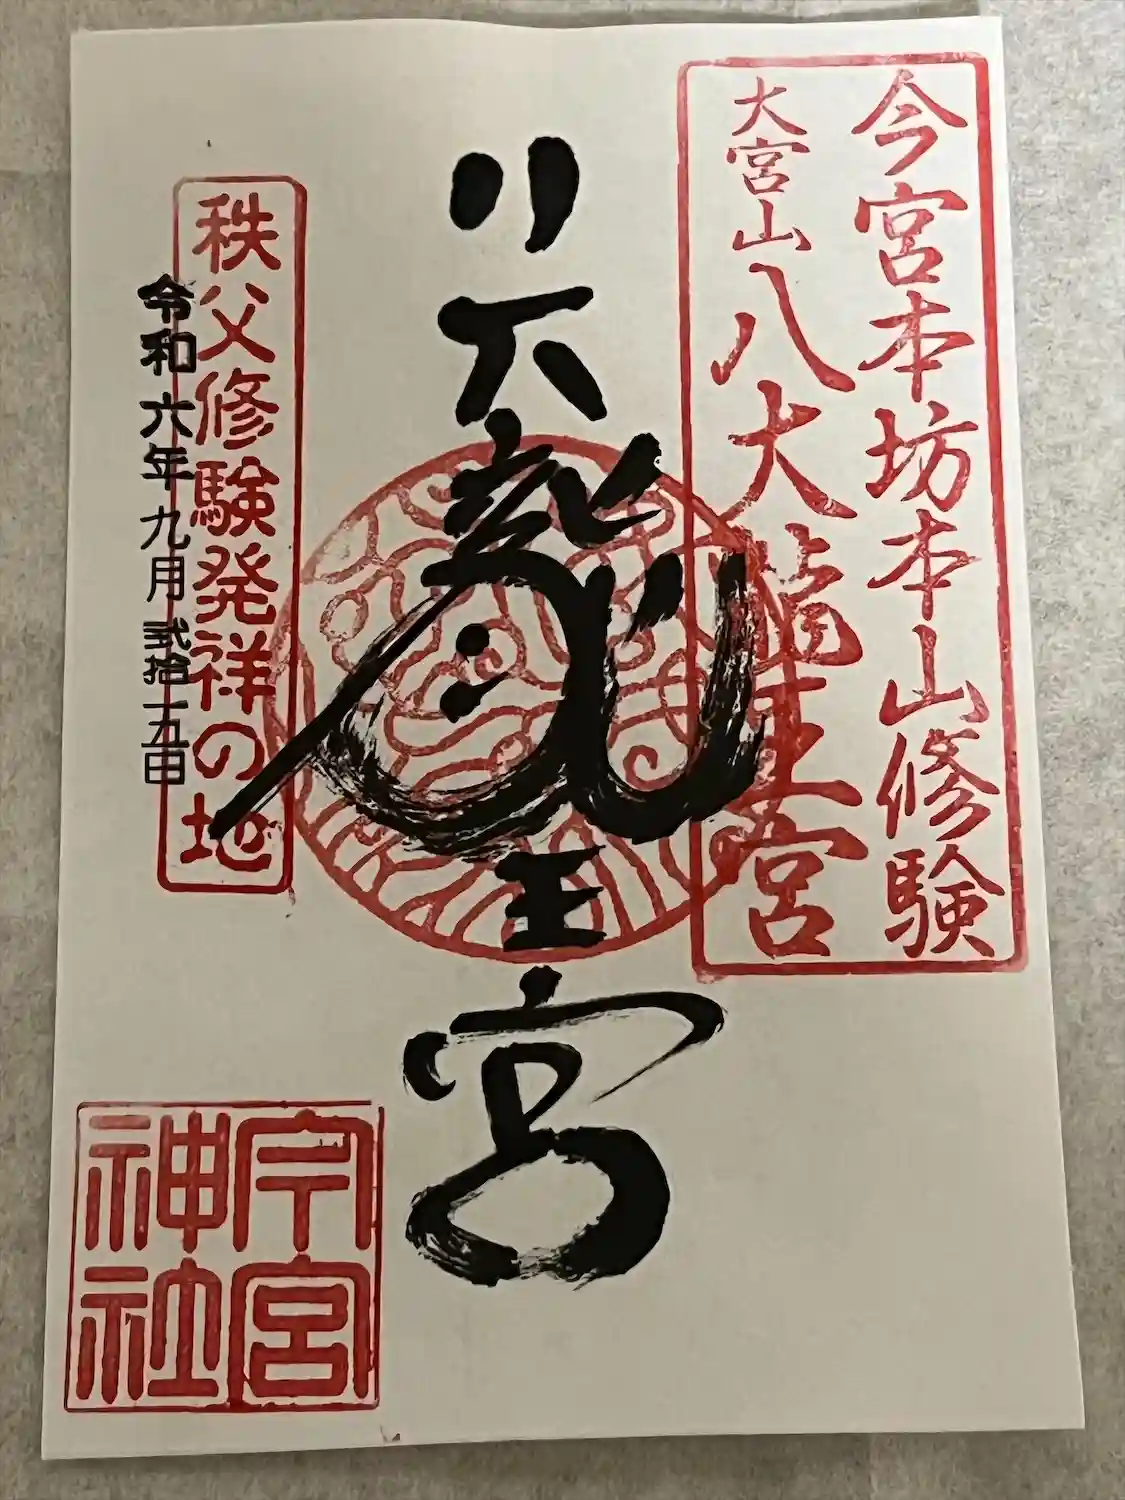 今宮本坊本山修験
大宮山八大龍王宮
八大龍王宮
秩父修験発祥の地
令和六年九月弐拾五日
今宮
神社